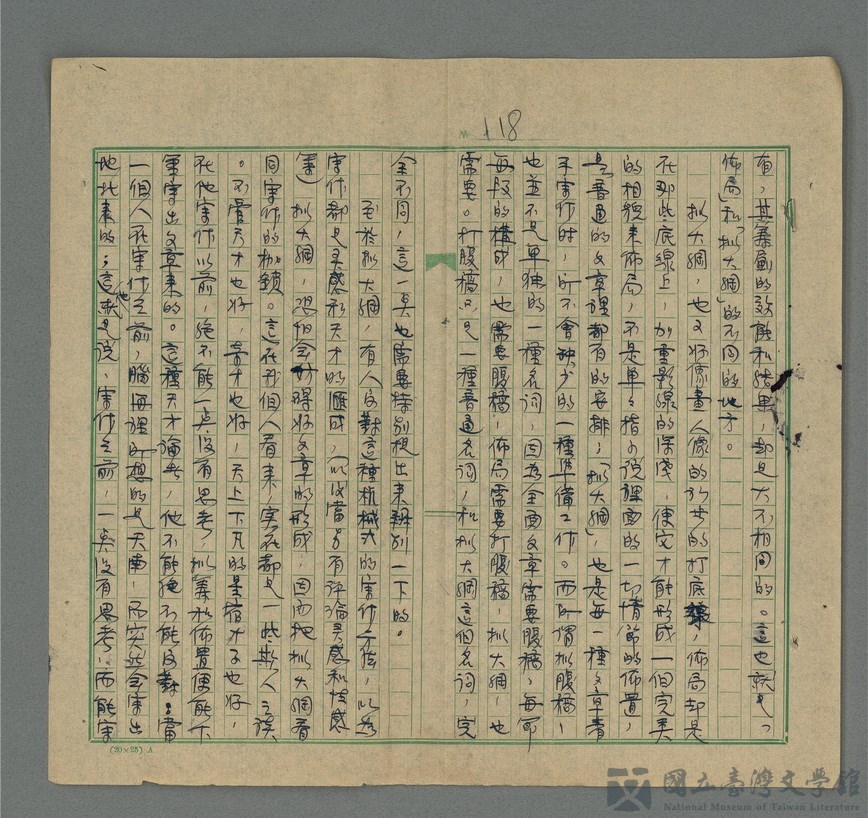 118
有，其纂劃的效能和結果，却是大不相同的。這也就是，
佈局和「拟大綱」的不同的地方。
拟大綱，也又好像畫人像的初步的打底線，佈局却是
在那些底線上，加重影線的深淺，使它才能形成一個完美
的相貌來佈局，不是單單指小說裡面的一切情節的佈置，
是普通的文章裡都有的安排；「拟大綱」，也是每一種文章着
手寫作時，所不會缺少的一種準備工作。而所謂拟腹稿，
也並不是單独的一種名詞，因為全面文章需要腹稿，每部
每段的構成，也需要腹稿，佈局需要打腹稿，拟大綱，也
需要。打腹稿只是一種普通名詞，和拟大綱這個名詞，完
全不同，這一点也需要特別提出來辨別一下的。
至於拟大綱，有人反對這種机械式的寫作方法，以為
寫作都是灵感和天才的匯成，（以後當另有評論灵感和性感
篇）拟大綱，恐怕会妨碍好文章的形成，因而把拟大綱看
同寫作的枷鎖。這在我個人看來，实在都是一些欺人之談
。不管天才也好，奇才也好，天上下凡的星宿才子也好，
在他寫作以前，絶不能一点没有思考，拟義和佈置便能下
筆寫出文章來的。這種天才論者，他不能絶不能反對：當
一個人在寫作之前，腦海裡所想的是天南，而突然会寫出
地北來的；這就是說，他寫作之前，一点没有思考，而能寫
(20×25) A
國立臺灣文學館
National Museum of Taiwan Literature